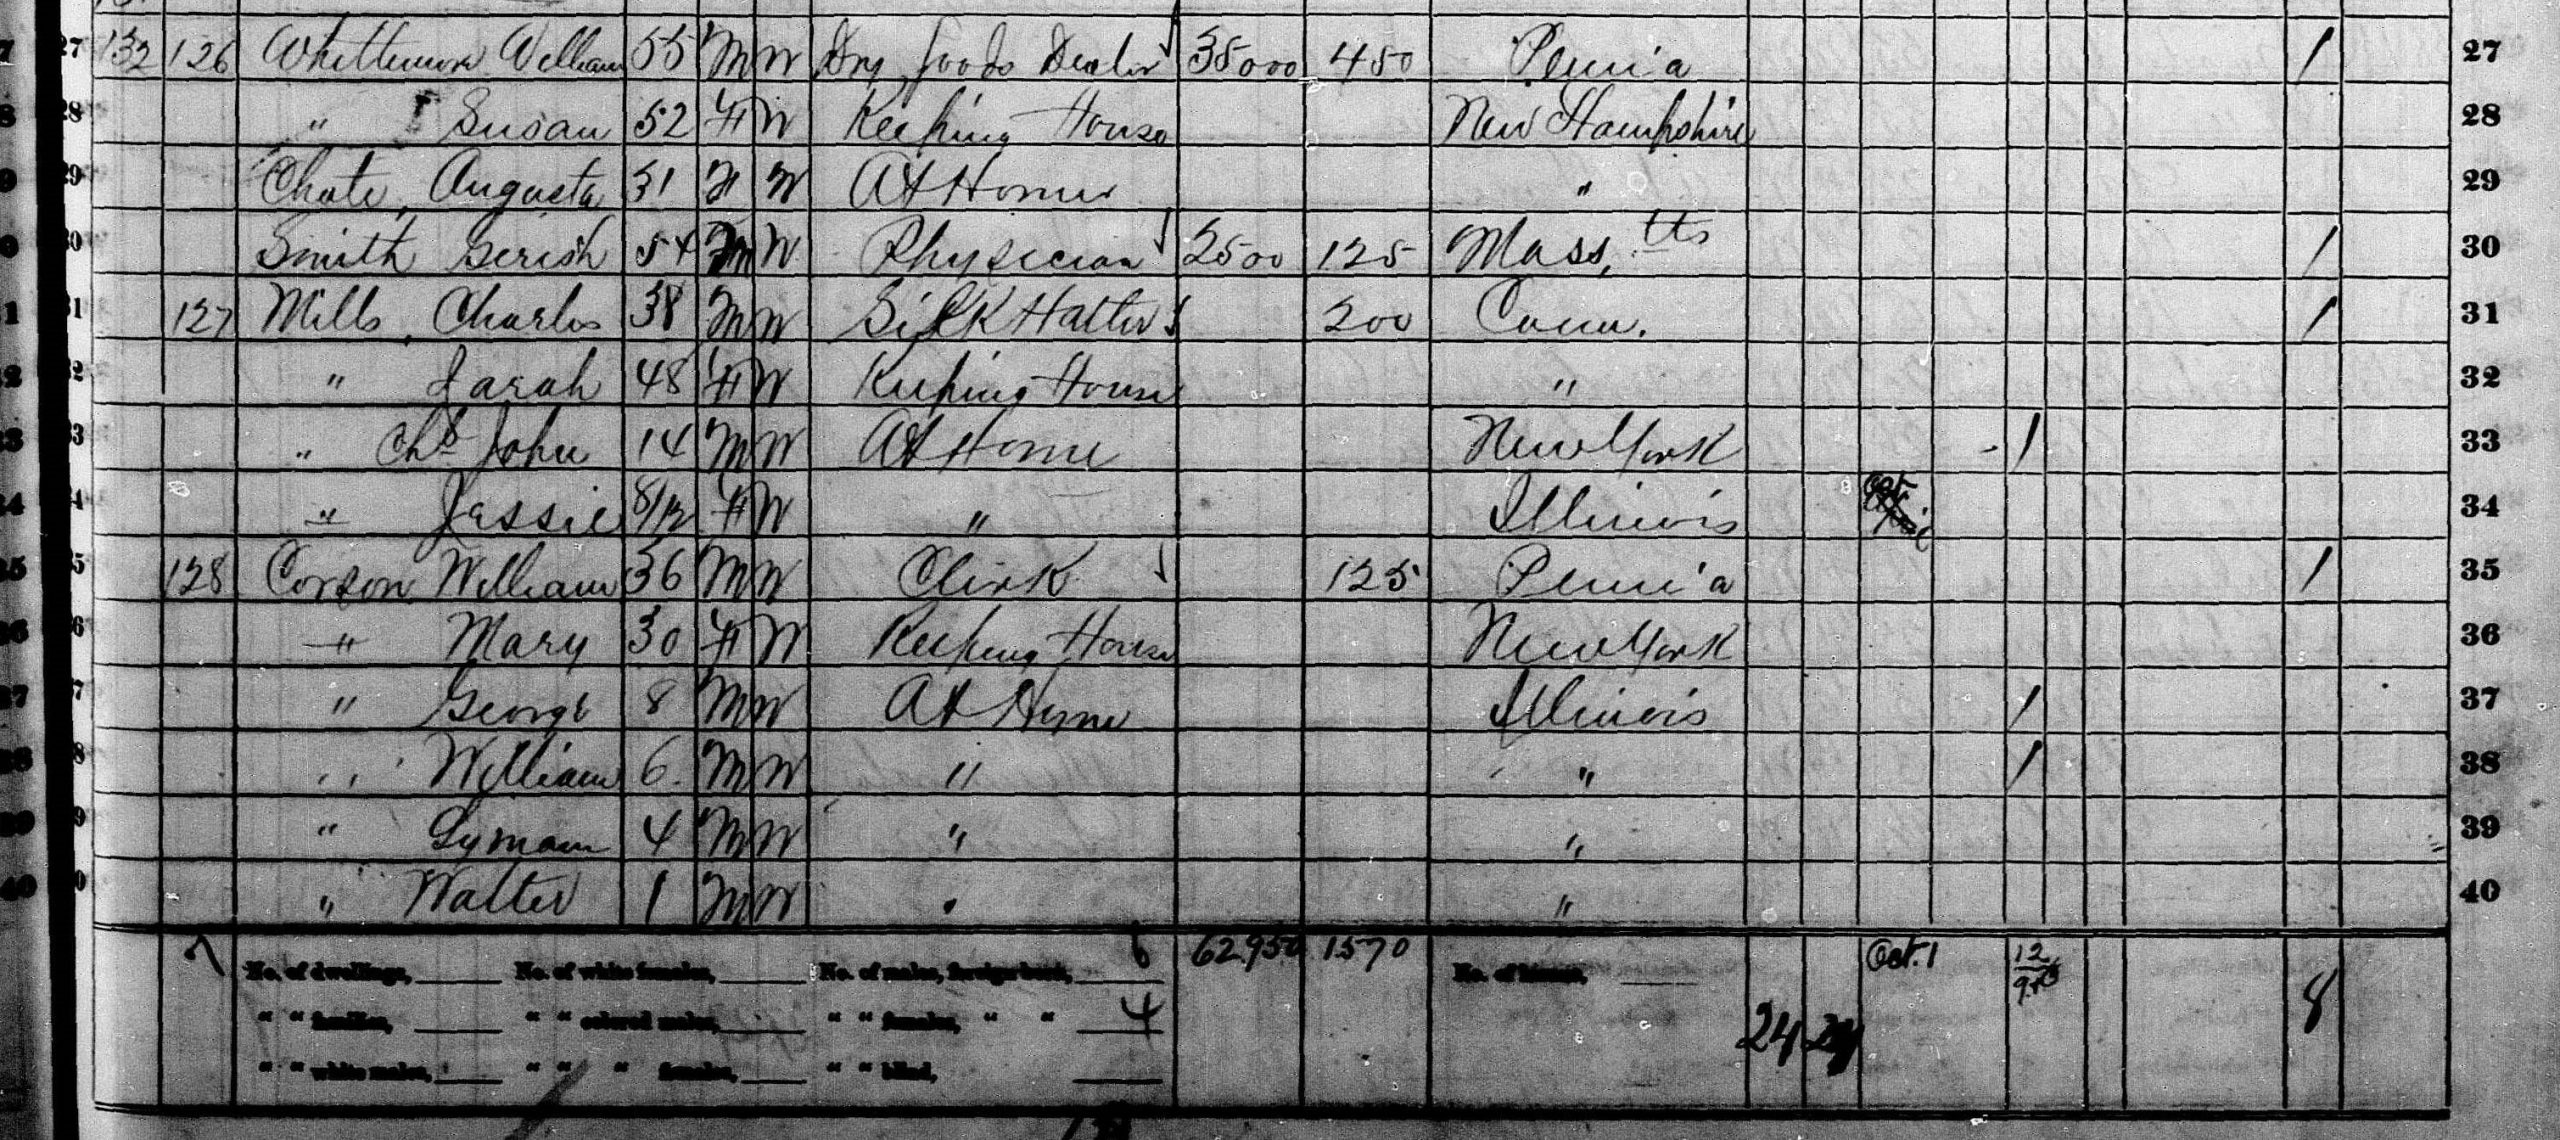 27 132 126 Whittemore William 55 M W Dry Goods Dealer 35000 450 Penn'a 1 27
28 " Susan 52 F W Keeping House New Hampshire 28
29 Chate, Augusta 31 F W At Home " 29
30 Smith Gerish 54 M W Physician 2500 125 Mass.tts 1 30
31 127 Mills, Charles 38 M W Silk Hatter 200 Conn. 1 31
32 " Sarah 48 F W Keeping House " 32
33 " Chs John 14 M W At Home New York 1 33
34 " Jessie 8/12 F W " Illinois Oct 34
35 128 Corson William 36 M W Clerk 125 Penn'a 1 35
36 " Mary 30 F W Keeping House New York 36
37 " George 8 M W At Home Illinois 1 37
38 " William 6 M W " " 1 38
39 " Lyman 4 M W " " 39
40 " Walter 1 M W " " 40
7 No. of dwellings, No. of white females, No. of males, foreign born, 6 62.950 1570 No. of insane, Oct. 1 12 8
" " families, " " colored males, " " females, " " 4 24 24
" " white males, " " " females, " " blind,